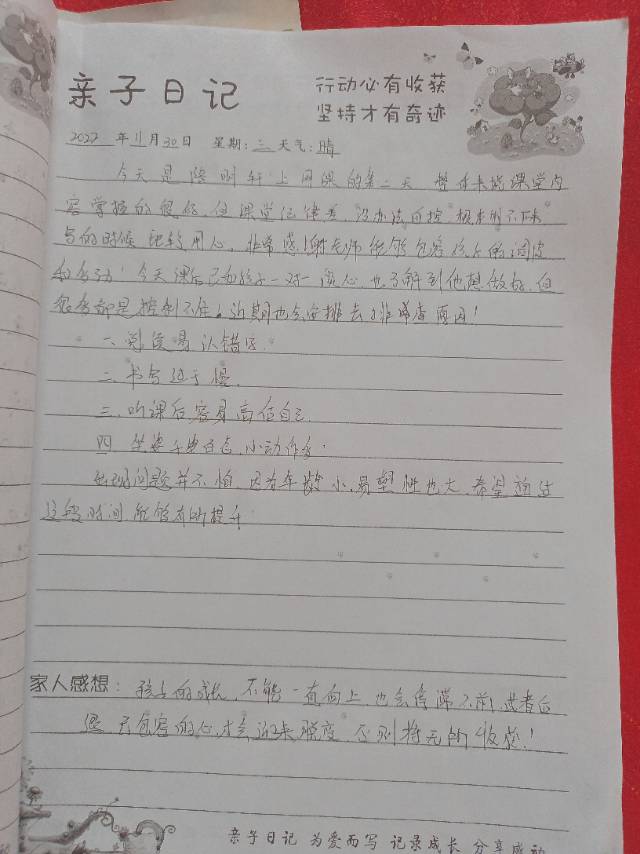 亲子日记
行动必有收获
坚持才有奇迹
2022年11月30日 星期:三 天气:晴
今天是陪 轩上网课的第二天 课堂内
容掌握的很好,但课堂纪律差,没办法自控,
写的时候比较用心,非常感谢老师能够包容孩子的调皮
和多动!今天课后已和孩子一对一谈心 也了解到他想做好,但
很多都是控制不住。近期也会安排去 原因!
一. 易认错字.
二.书写过于慢.
三.听课后容易高估自己.
四 坐姿 小动作多.
出现问题并不怕,因为年龄小,易塑性也大,希望通过
这段时间能够有所提升.
家人感想:孩子的成长,不能一直向上,也会停滞不前,或者后
退 包容的心,才会 否则 收获!
亲子日记 为爱而写 记录成长 分享感动